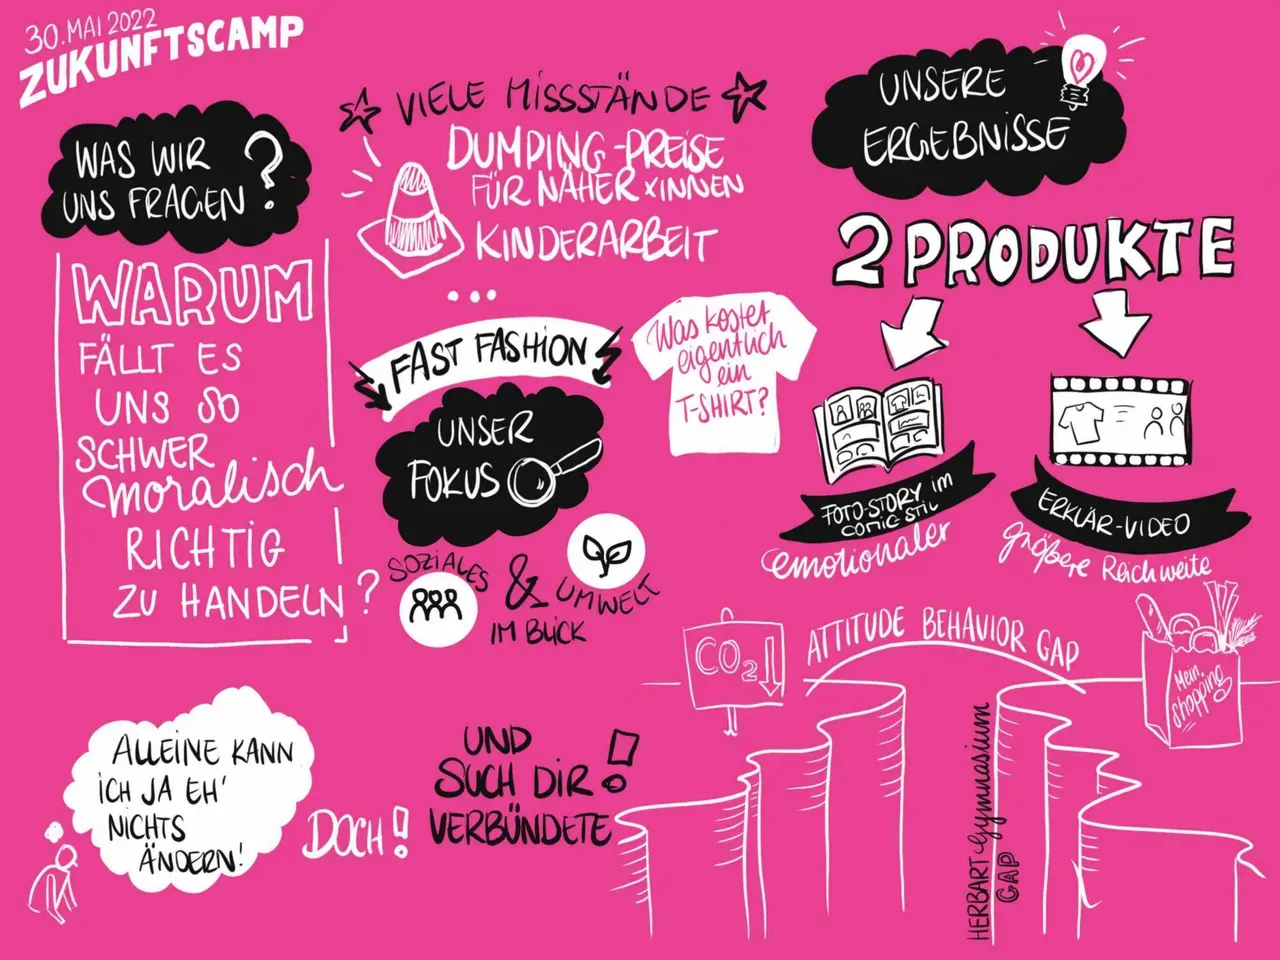 30. MAI 2022
ZUKUNFTSCAMP
WAS WIR
UNS FRAGEN?
WARUM
FÄLLT ES
UNS SO
SCHWER
moralisch
RICHTIG
ZU HANDELN?
VIELE MISSSTÄNDE
DUMPING-PREISE
FÜR NÄHER*INNEN
KINDERARBEIT
...
FAST FASHION
UNSER
FOKUS
SOZIALES
& UMWELT
IM BLICK
Was kostet
eigentlich
ein
T-SHIRT?
UNSERE
ERGEBNISSE
2 PRODUKTE
FOTO-STORY im
COMIC-STIL
emotionaler
ERKLÄR-VIDEO
größere Reichweite
ALLEINE KANN
ICH JA EH'
NICHTS
ÄNDERN!
DOCH!
UND
SUCH DIR
VERBÜNDETE!
CO2
ATTITUDE BEHAVIOR GAP
Mein
Shopping
HERBART Gymnasium
GAP